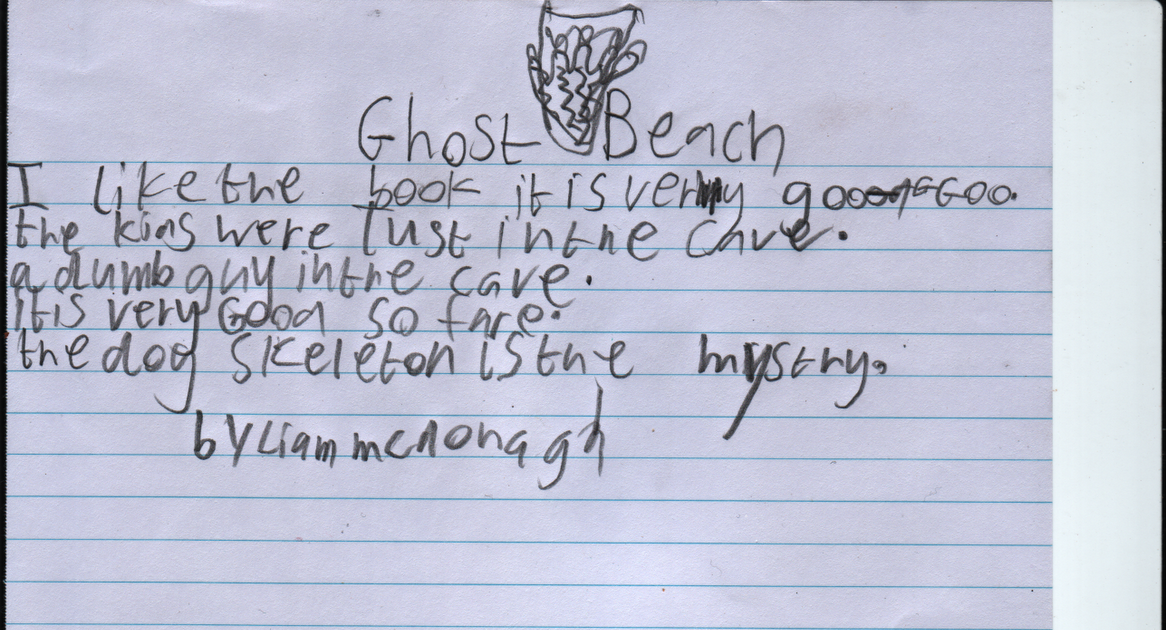 Ghost Beach
I like the book it is very goo
the kids were lust in the cave.
a dumb guy in the cave.
it is very Good so fare.
the dog skeleton is the mystry.
by Liam mcdonagh